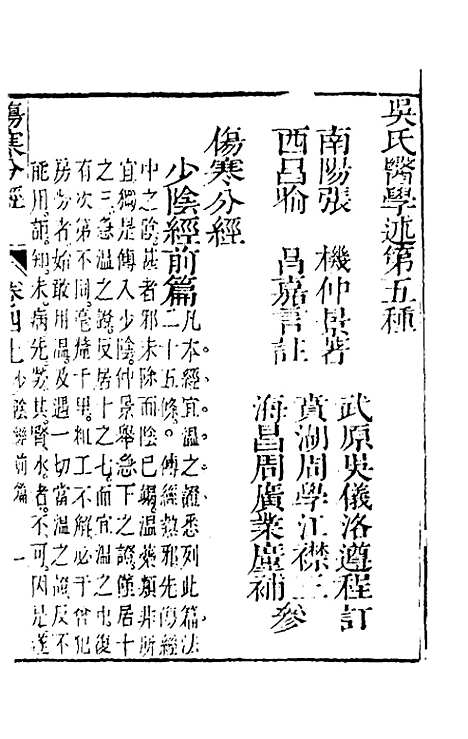 吳氏醫學述第五種
南陽張　機仲景著
西昌喻　昌嘉言註
武原吳儀洛遵程訂
賁湖周學江襟三
海昌周廣業廛補　參
傷寒分經
少陰經前篇
凡本經宜溫之證悉列此篇法
二十五條。傳經熱邪先傷經
中之陰。甚者邪未除而陰已竭。溫藥類非所
宜。獨是傳入少陰。仲景舉急下之證。僅居十
之三。急溫之證。反居十之七。而宜溫之中。復
有次第不同。毫釐千里。粗工不解。必于曾犯
房勞者。始敢用溫。及遇一切當溫之證。反不
能用。詎知未病先勞其腎水者。不可因是遂
傷寒分經
卷四上少陰經前篇
一